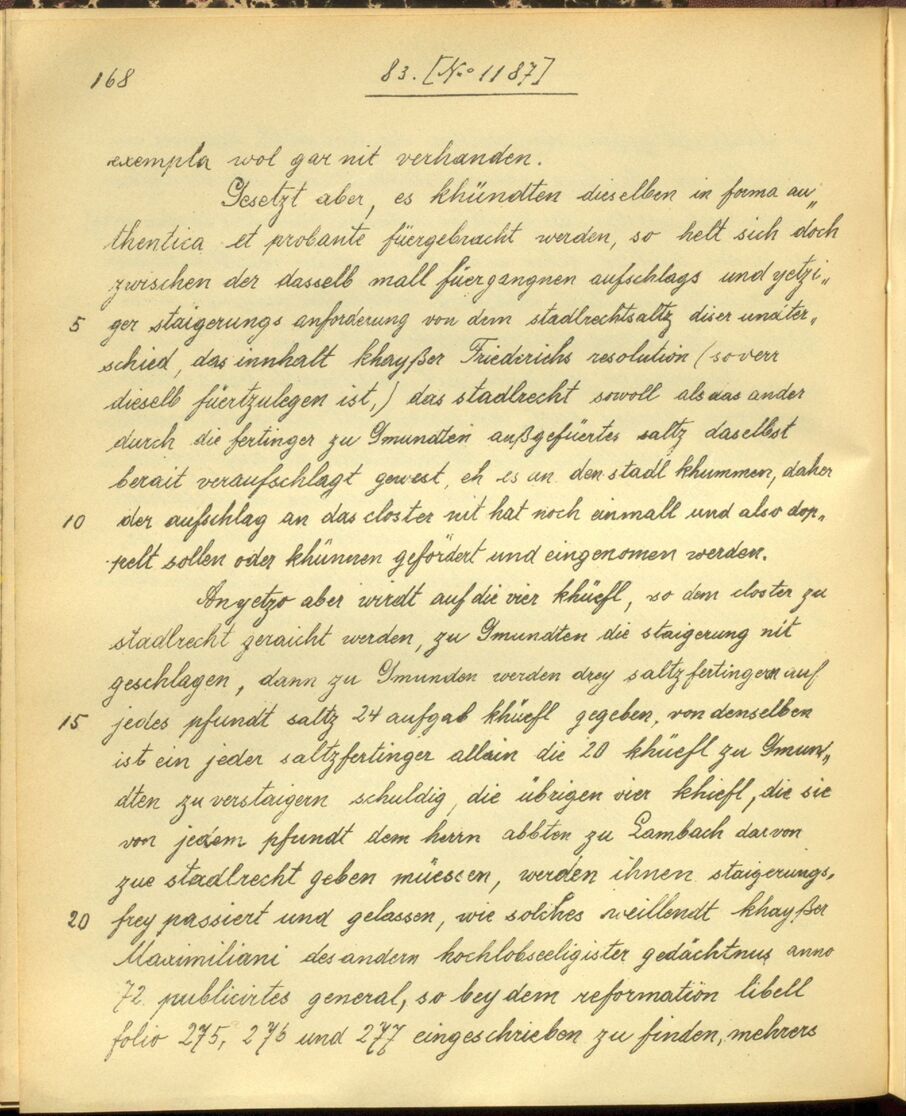 168
83. [No 1187]
exempla wol gar nit verhanden.
Gesetzt aber, es khündten dieselben in forma au„
thentica et probante füergebracht werden, so helt sich doch
zwischen der dasselb mall füergangnen aufschlags und yetzi„
5 ger staigerungs anforderung von dem stadlrechtsaltz diser undter„
schied, das innhalt khayßer Friederichs resolution (soverr
dieselb füertzulegen ist,) das stadlrecht sowoll als das ander
durch die fertinger zu Gmundten außgefüertes saltz daselbst
berait veraufschlagt gewest, eh es an den stadl khummen, daher
10 der aufschlag an das closter nit hat noch einmall und also dop„
pelt sollen oder khünnen gefördert und eingenomen werden.
Anyetzo aber wirdt auf die vier khüefl, so dem closter zu
stadlrecht geraicht werden, zu Gmundten die staigerung nit
geschlagen, dann zu Gmunden werden drey saltzfertingern auf
15 jedes pfundt saltz 24 aufgab khüefl gegeben, von denselben
ist ein jeder saltzfertinger allein die 20 khüefl zu Gmun„
dten zu verstaigern schuldig, die übrigen vier khiefl, die sie
von jedem pfundt dem herrn abbten zu Lambach darvon
zue stadlrecht geben müessen, werden ihnen staigerungs„
20 frey passiert und gelassen, wie solches weillendt khayßer
Maximiliani des andern hochlobseeligister gedächtnus anno
72 publicirtes general, so bey dem reformation libell
folio 275, 276 und 277 eingeschrieben zu finden, mehrers